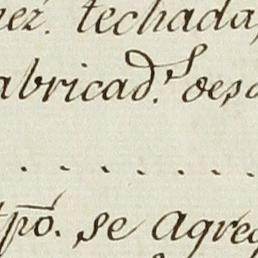 nez. techada,
abricad.s desd
. . . . . . . .
tpō. se agreg